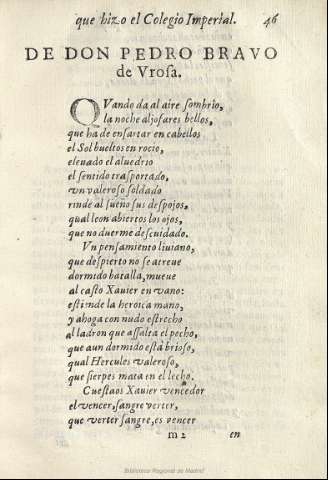 que hizo el Colegio Imperial. 46
DE DON PEDRO BRAVO
de Vrosa.
QVando da al aire sombrio,
la noche aljofares bellos,
que ha de ensartar en cabellos
el Sol bueltos en rocio,
eleuado el aluedrio
el sentido trasportado,
vn valeroso soldado
rinde al sueño sus despojos,
qual leon abiertos los ojos,
que no duerme descuidado.
Vn pensamiento liuiano,
que despierto no se atreue
dormido batalla, mueue
al casto Xauier en vano:
estiende la heroica mano,
y ahoga con nudo estrecho
al ladron que assalta el pecho,
que aun dormido està brioso,
qual Hercules valeroso,
que sierpes mata en el lecho.
Cuestaos Xauier vencedor
el vencer, sangre verter,
que verter sangre, es vencer
m 2 en
Biblioteca Regional de Madrid